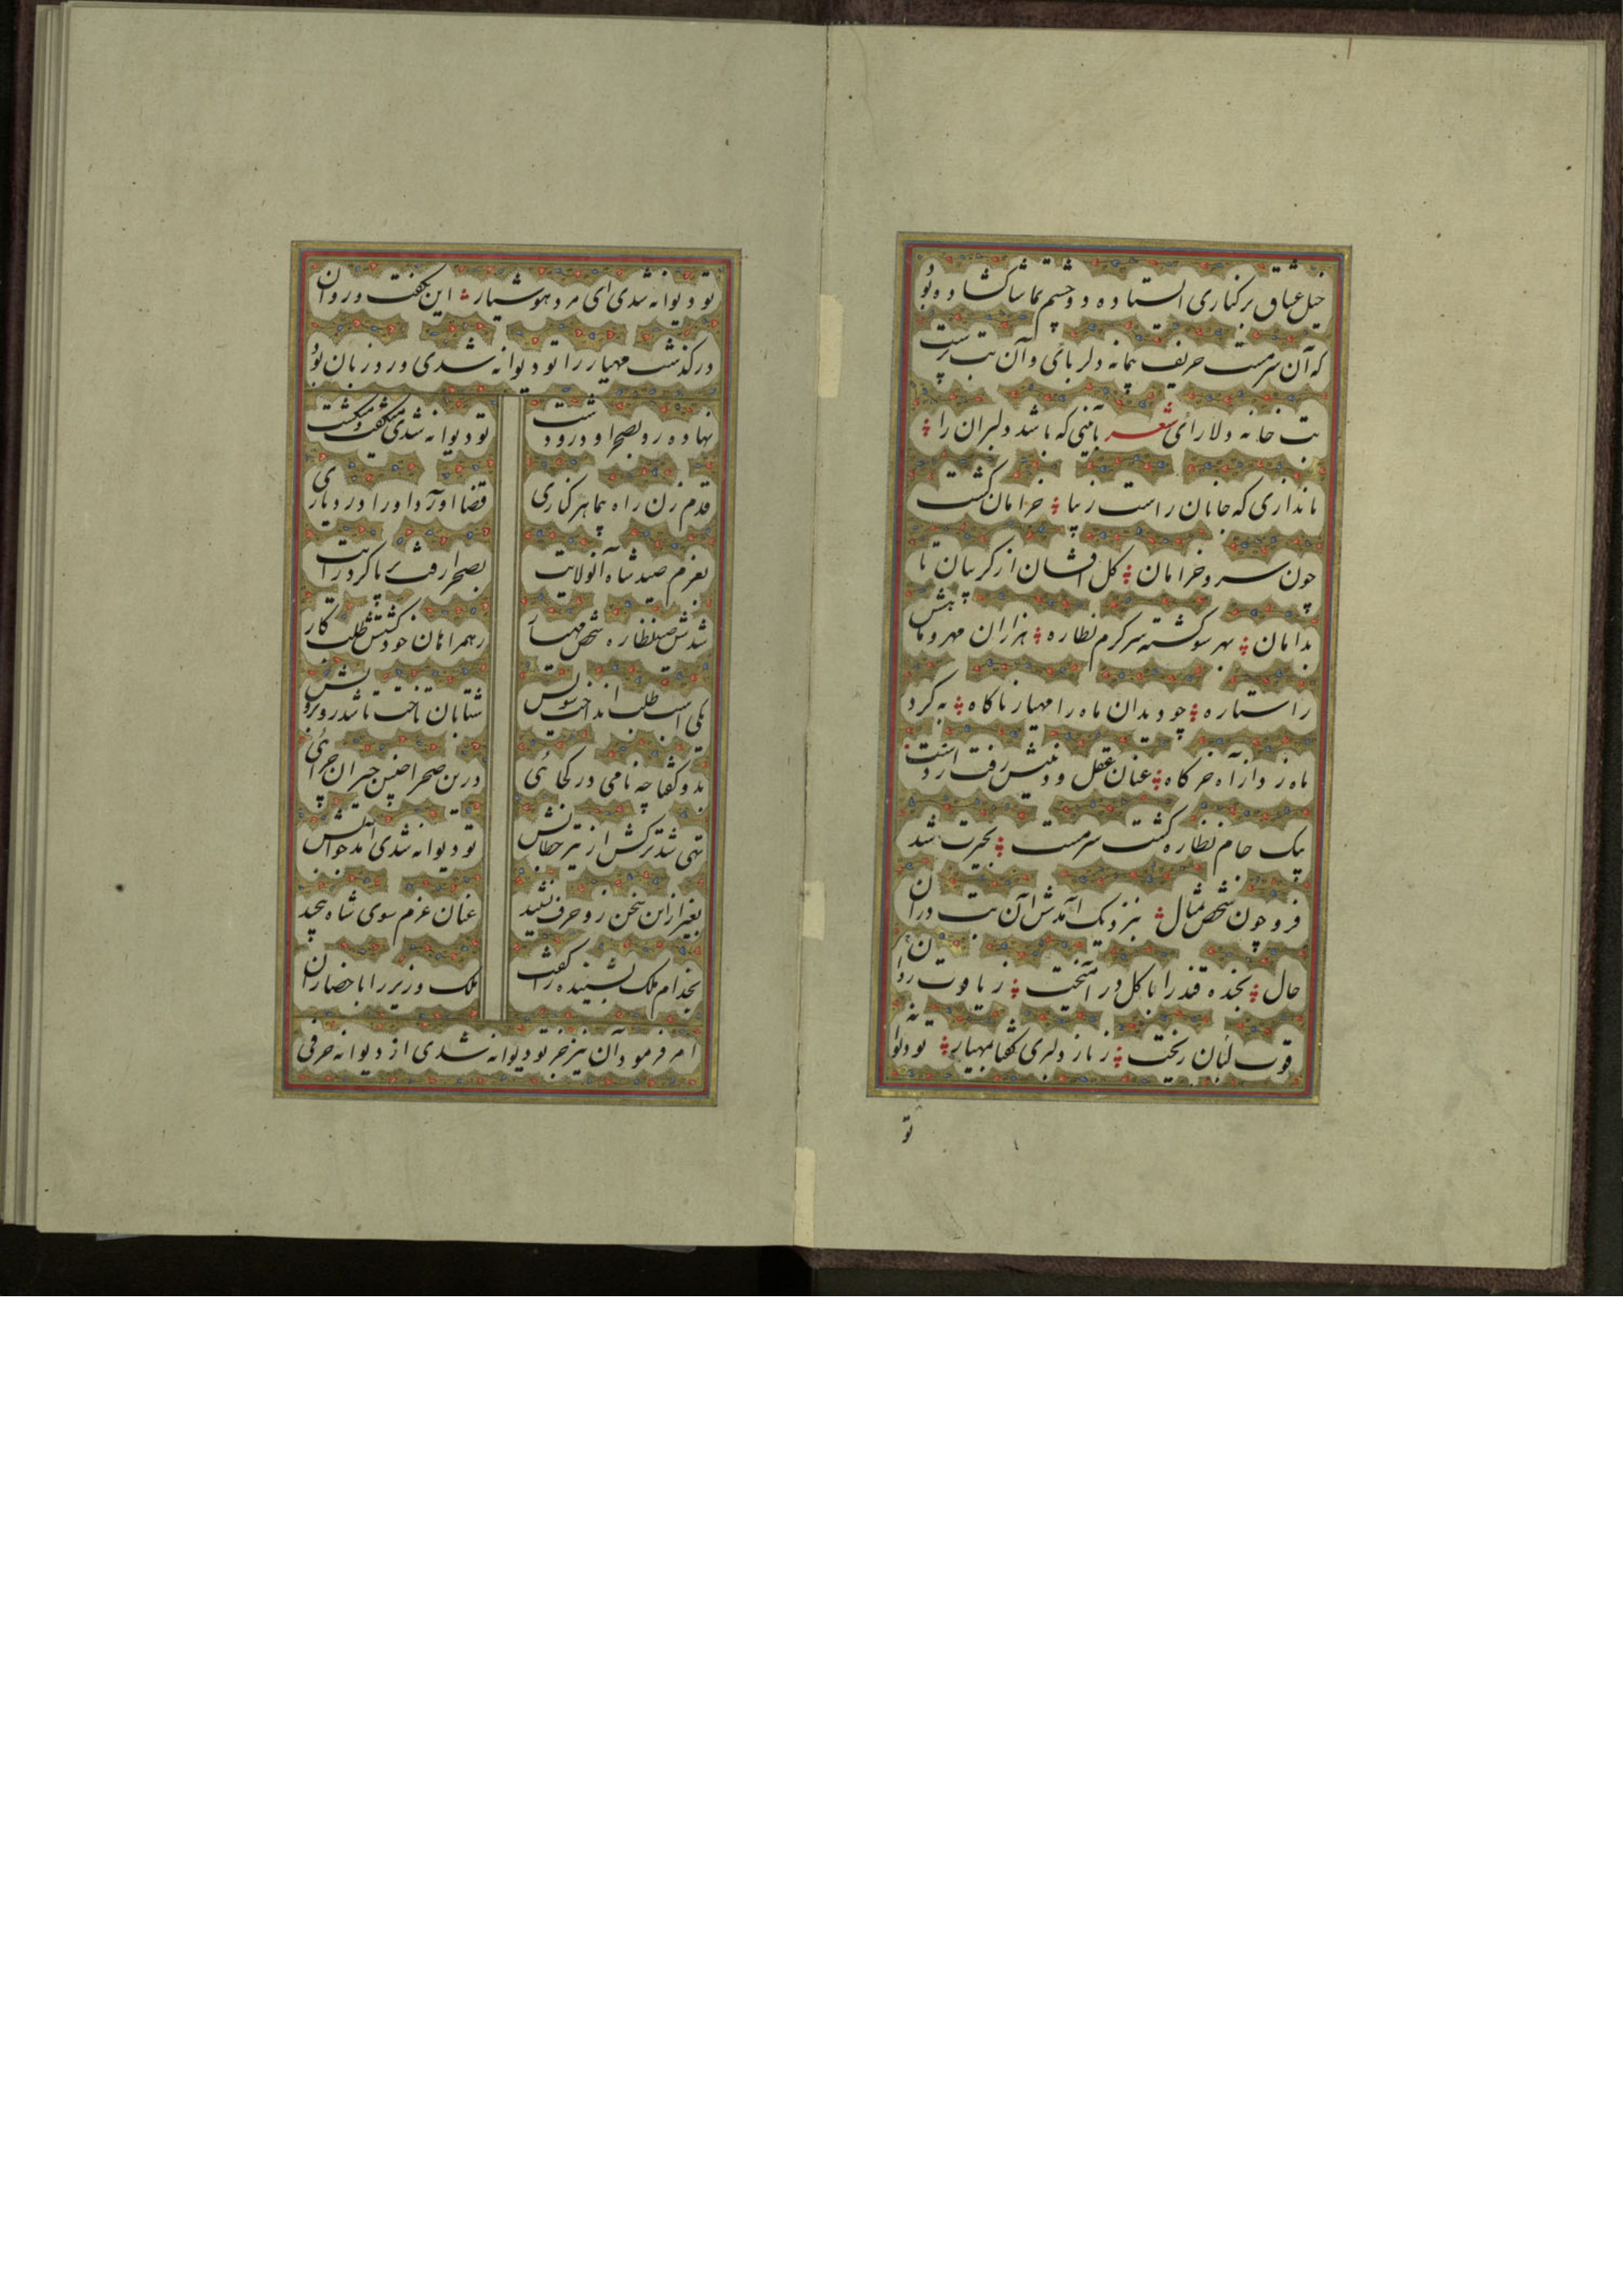 خیل عشاق برکناری استاده دو چشم تماشا کشاده بود
که آن سرمست حریف پیمانه دلربائی و آن بت پرست
بت خانه دلارائی شعر بآئینی که باشد دلبران را
باندازی که جانان راست زیبا خرامان کشت
چون سرو خرامان کل افشان از کریبان تا
بدامان بهر سو کشته سرکرم نظاره هزاران مهر و ماهش
را ستاره چو دید آن ماه را مهیار ناکاه به کرد
ماه زد از آه خرکاه عنان عقل و دینش رفت از دست
بیک جام نظاره کشت سرمست بحیرت شد
فرو چون شخص تمثال بنزدیک آمدش آن بت در آن
حال بخنده قند را با کل در آمیخت ز یاقوت روان
قوت لبان ریخت ز ناز دلبری کفتا بمهیار تو دیوانه
تو
تو دیوانه شدی ای مرد هوشیار این بکفت و روان
درکذشت مهیار را تو دیوانه شدی ورد زبان بود
نهاده رو بصحرا و در و دشت تو دیوانه شدی میکفت و میکشت
قدم زن راه پیما هر کناری قضا آورد او را در دیاری
بعزم صید شاه آن ولایت بصحرا رفت بر پا کرد رایت
شدش صید نظاره شخص مهیار ز همراهان خود کشتش طلب کار
یکی اسب طلب انداخت سویش شتابان تاخت تا شد روبرویش
بدو کفتا چه نامی در کجائی درین صحرا چنین حیران چرائی
تهی شد ترکش از تیر خطابش تو دیوانه شدی آمد جوابش
بغیر از این سخن زو حرف نشنید عنان عزم سوی شاه پیچید
بخدام ملک بشنیده را کفت ملک وزیر را باحضار آن
امر فرمود آن نیز جز تو دیوانه شدی از دیوانه حرفی